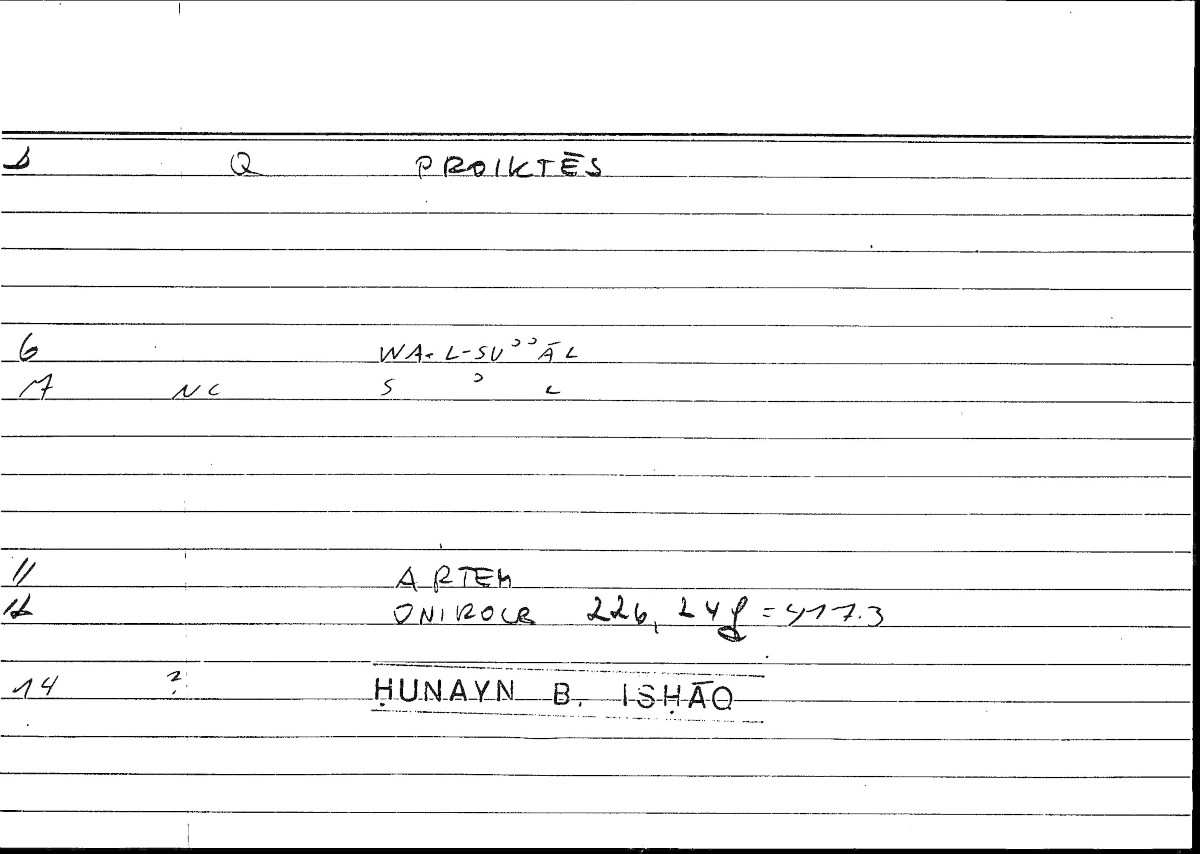 1 Q PROIKTĒS
6 WA-L-SUʾʾĀL
7 NC S ʾ L
11 ARTEM
12 ONIROCR 226, 24f = 417.3
14 ? ḤUNAYN B. ISḤĀQ